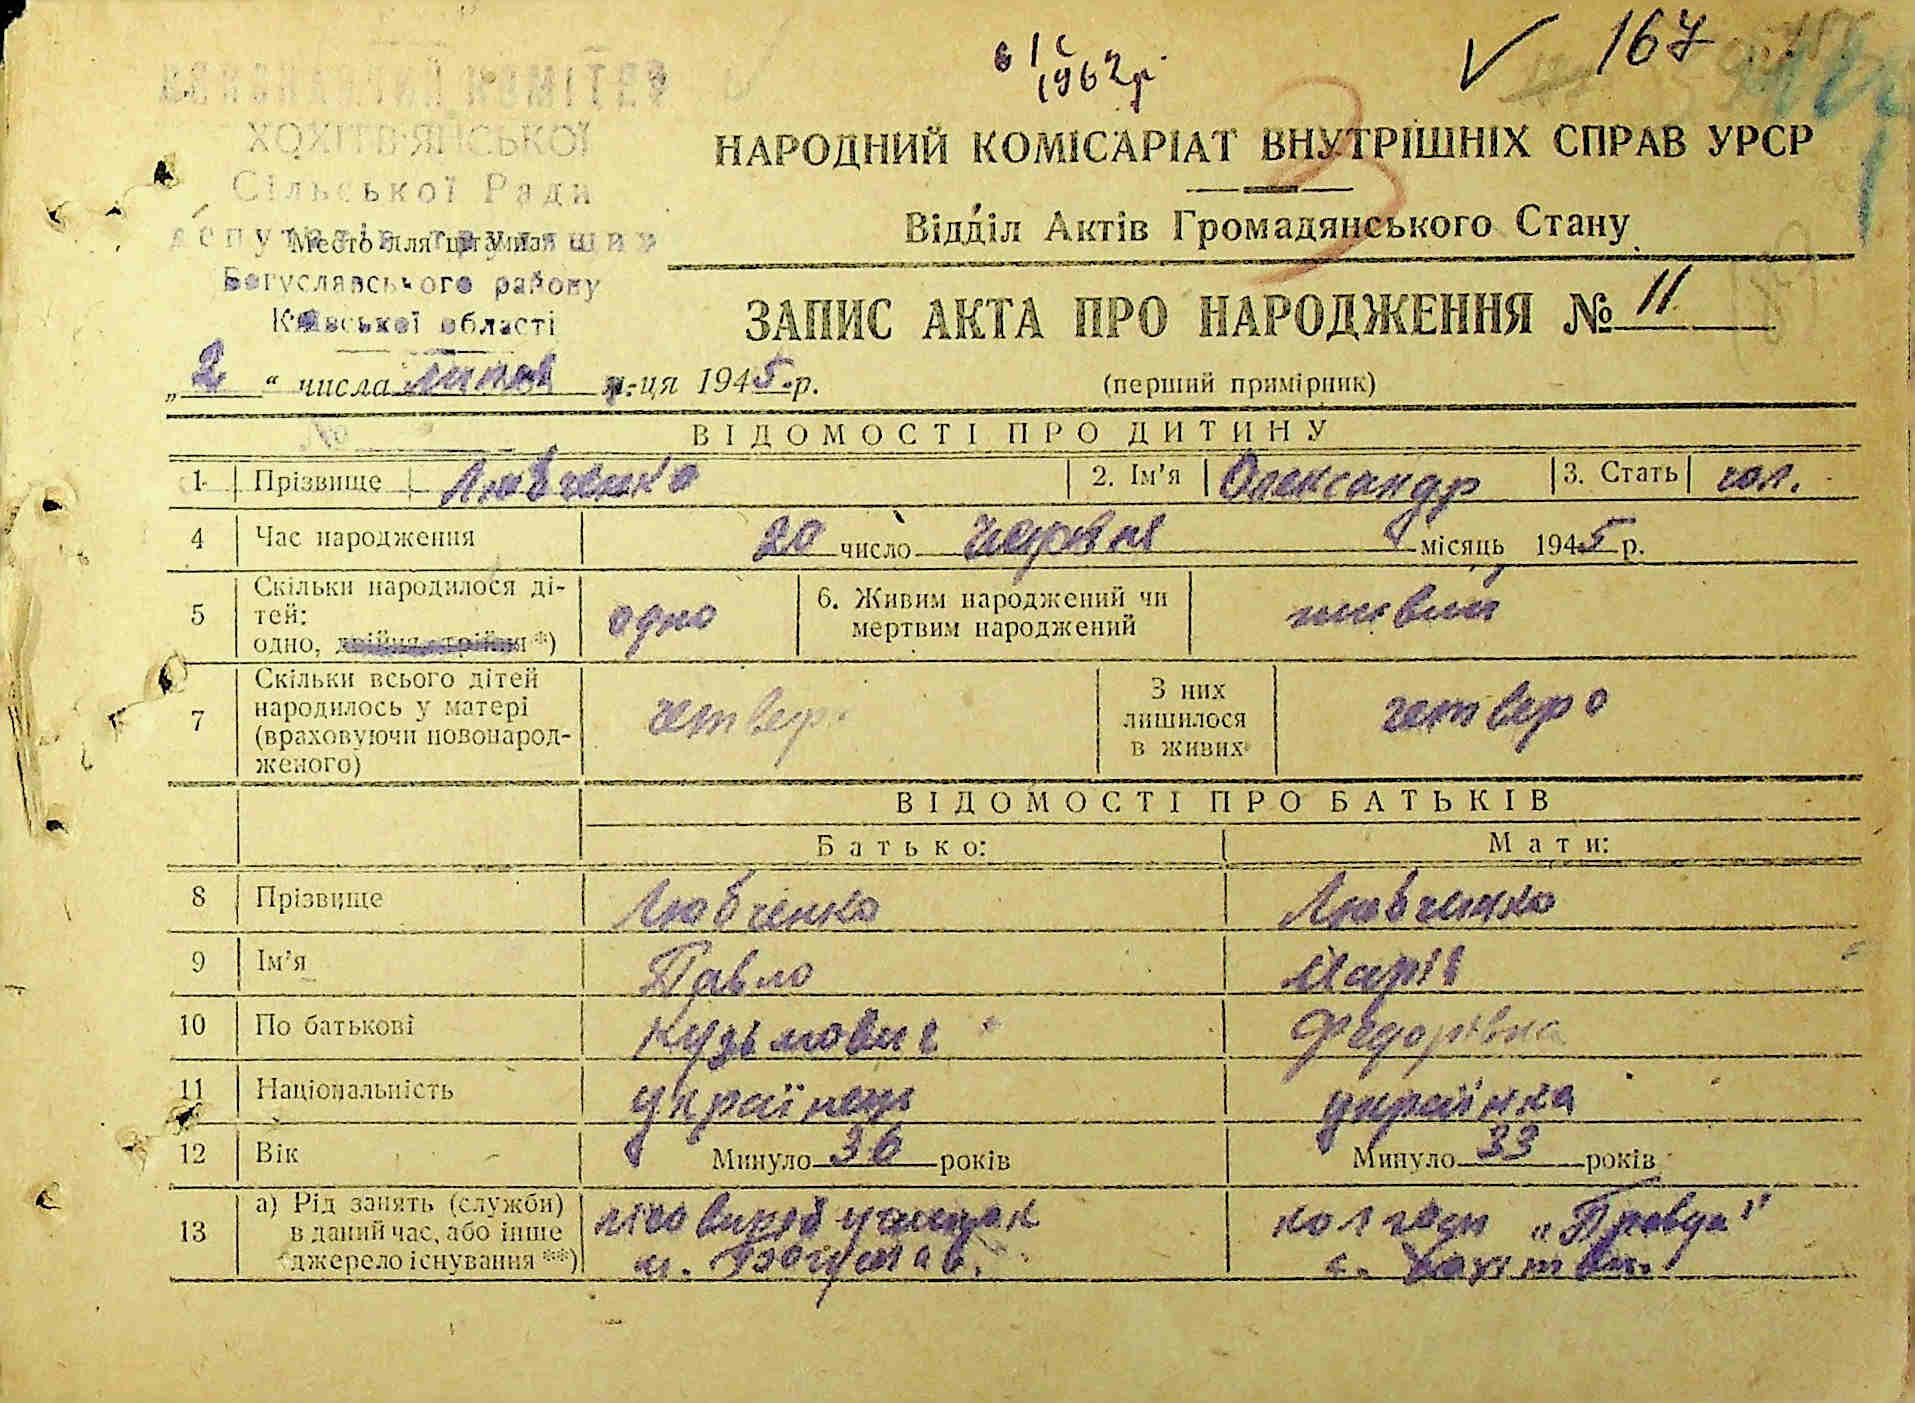 167
1962 р.
ХОХІТВ'ЯНСЬКОЇ
Сільської Ради
депутатів трудящих
Место для штампа
Богуславського району
Київської області
НАРОДНИЙ КОМІСАРІАТ ВНУТРІШНІХ СПРАВ УРСР
Відділ Актів Громадянського Стану
ЗАПИС АКТА ПРО НАРОДЖЕННЯ № 11
„2“ числа липня м-ця 1945 р. (перший примірник)
ВІДОМОСТІ ПРО ДИТИНУ
1 Прізвище Любченко 2. Ім'я Олександр 3. Стать чол.
4 Час народження 20 число червня місяць 1945 р.
5 Скільки народилося ді-
тей:
одно, двійня, трійня *) одно
6. Живим народжений чи
мертвим народжений живий
7 Скільки всього дітей
народилось у матері
(враховуючи новонарод-
женого) четверо
З них
лишилося
в живих четверо
ВІДОМОСТІ ПРО БАТЬКІВ
Батько: Мати:
8 Прізвище Любченко Любченко
9 Ім'я Павло Марія
10 По батькові Кузьмович Федорівна
11 Національність українець українка
12 Вік Минуло 36 років Минуло 33 років
13 а) Рід занять (служби)
в даний час, або інше
джерело існування **)
м. Богуслав.
колгосп „Правда"
с. Хохітва.